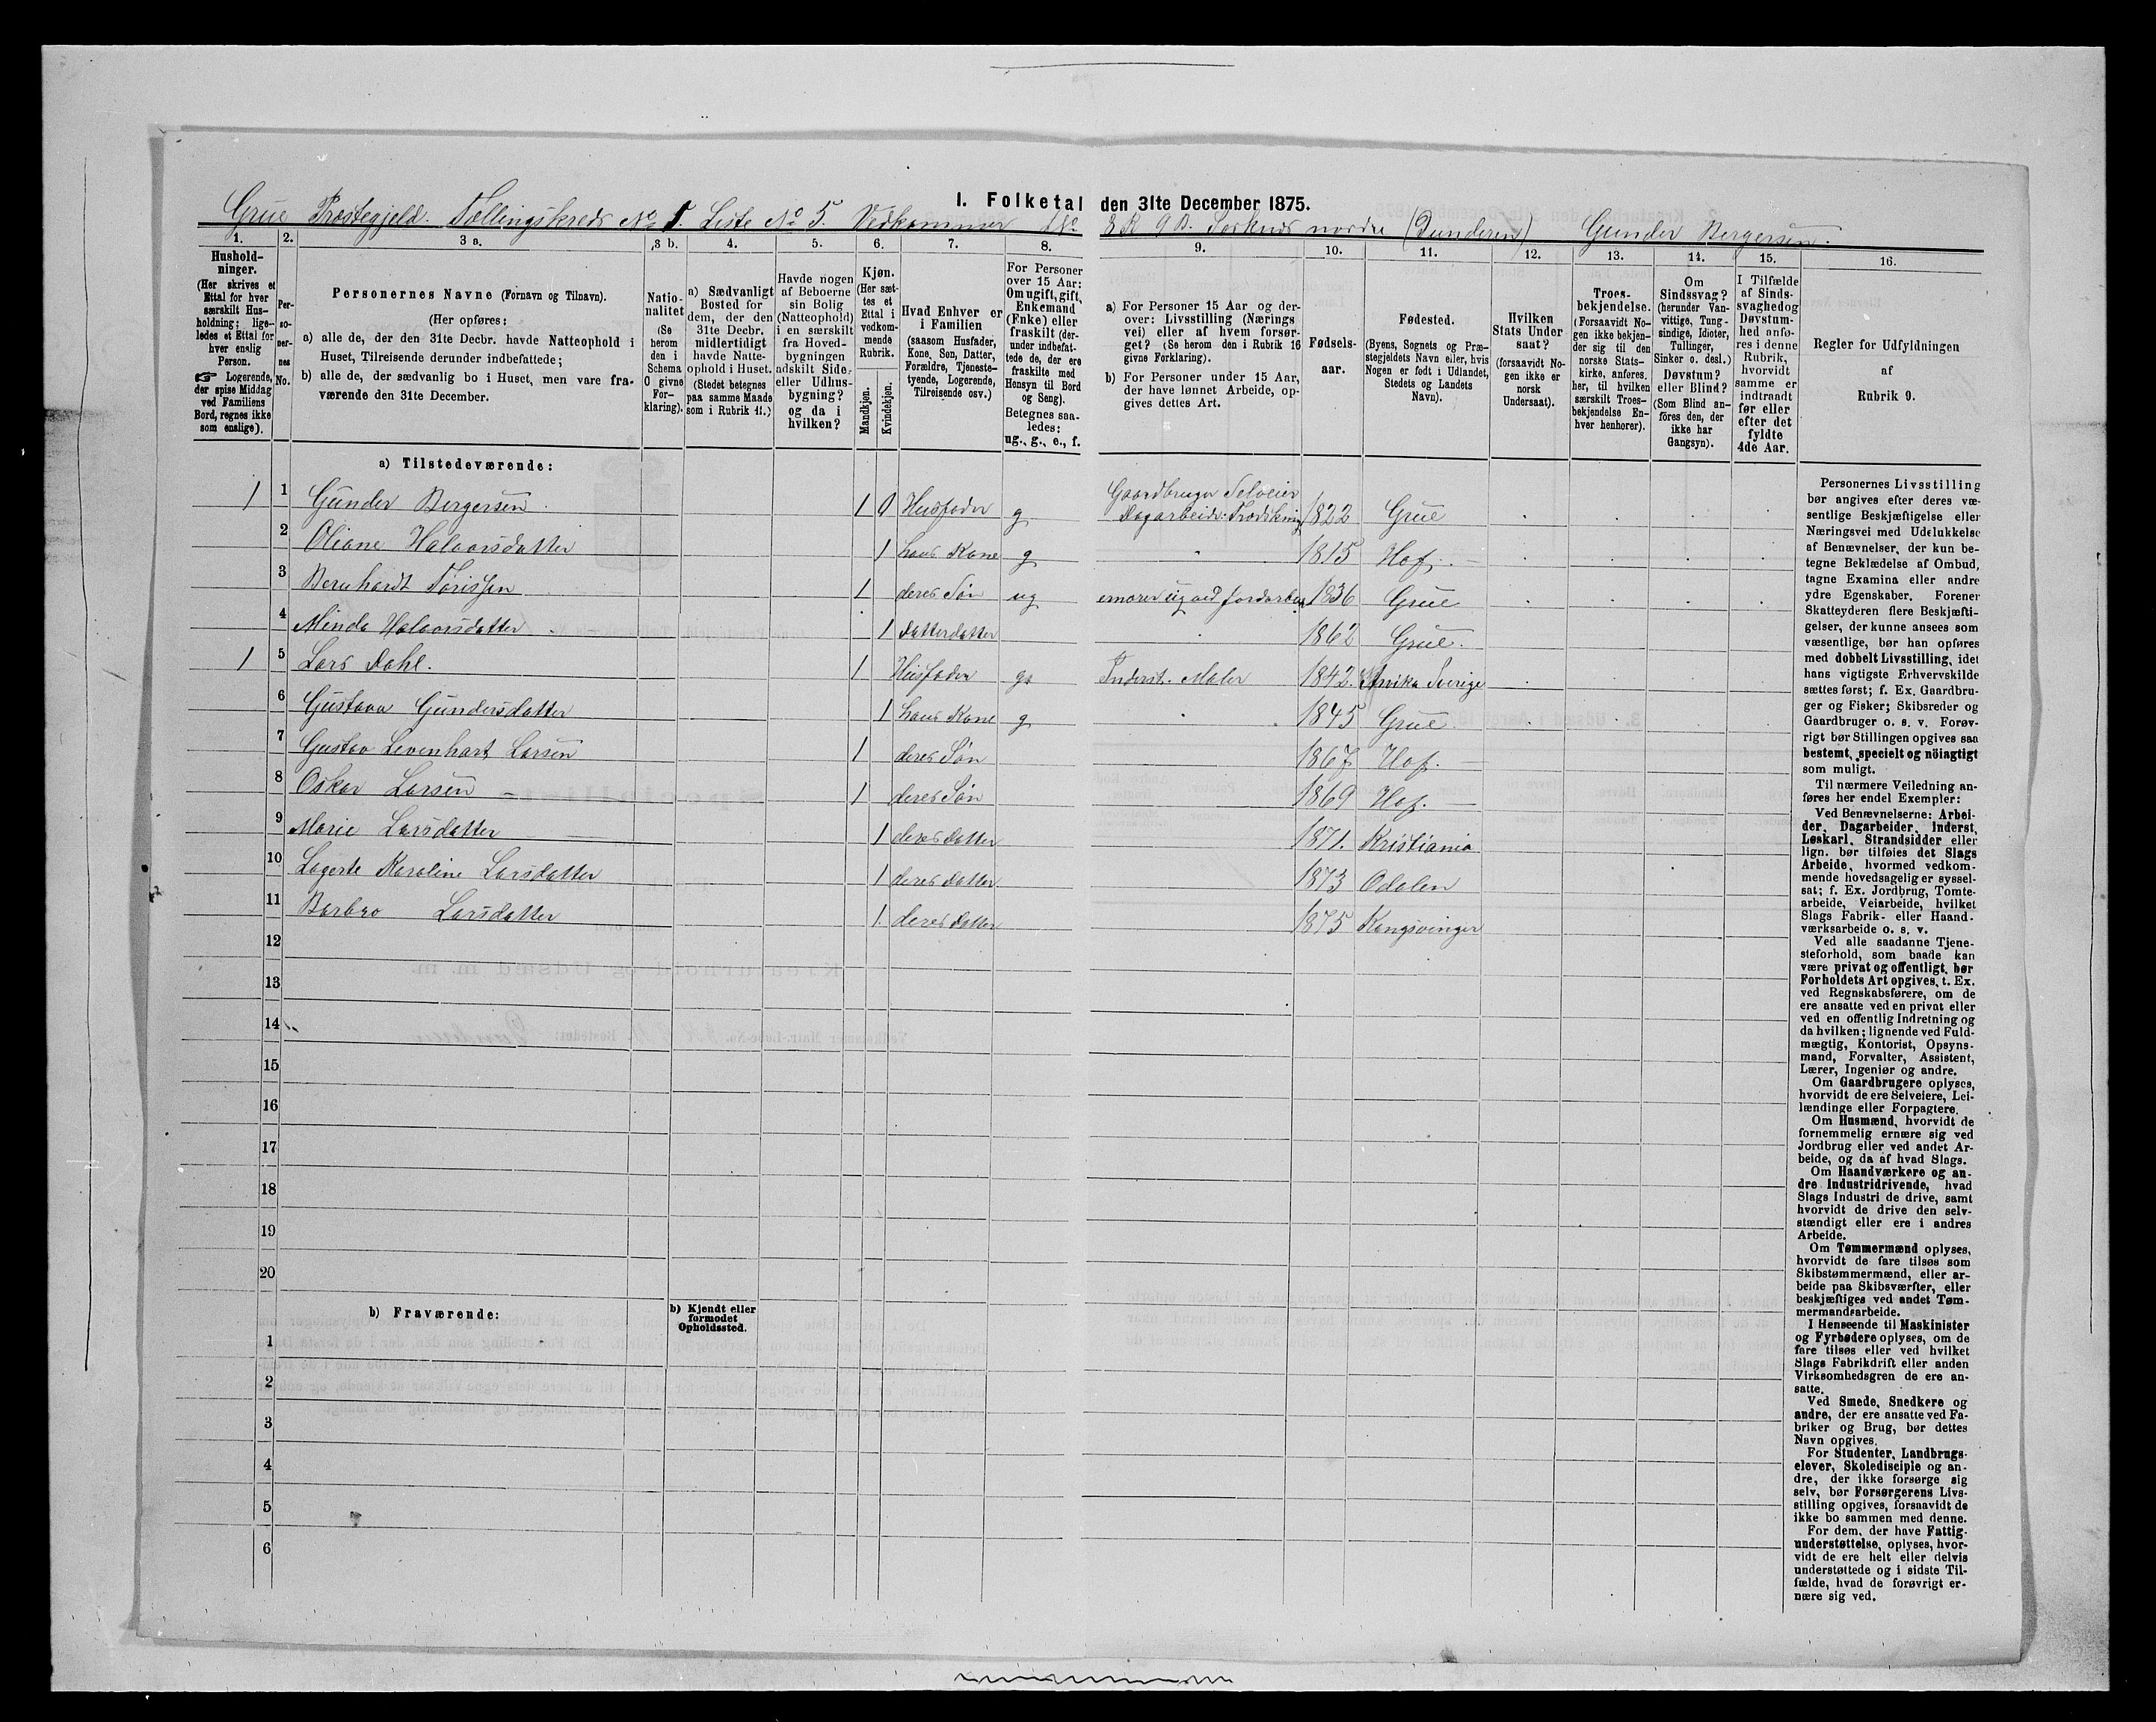 I. Folketal den 31te December 1875.
Grue Præstegjeld. Tællingskreds No 5 Liste No 5. Vedkommer No 8 & 9 B. Sorknes nordre (Dunderen) Gunder Bergersen.
1. 2. 3 a. 3 b. 4. 5. 6. 7. 8. 9. 10. 11. 12. 13. 14. 15. 16.
Hushold-
ninger.
(Her skrives et
Ettal for hver
særskilt Hus-
holdning; lige-
ledes et Ettal for
hver enslig
Person.
☞ Logerende,
der spise Middag
ved Familiens
Bord, regnes ikke
som enslige).
Per-
so-
ner-
nes
No.
Personernes Navne (Fornavn og Tilnavn).
(Her opføres:
a) alle de, der den 31te Decbr. havde Natteophold i
Huset, Tilreisende derunder indbefattede;
b) alle de, der sædvanlig bo i Huset, men vare fra-
værende den 31te December.
Natio-
nalitet
(Se
herom
den i
Schema
O givne
For-
klaring).
a) Sædvanligt
Bosted for
dem, der den
31te Decbr.
midlertidigt
havde Natte-
ophold i Huset.
(Stedet betegnes
paa samme Maade
som i Rubrik 11.)
Havde nogen
af Beboerne
sin Bolig
(Natteophold)
i en særskilt
fra Hoved-
bygningen
adskilt Side-
eller Udhus-
bygning?
og da i
hvilken?
Kjøn.
(Her sæt-
tes et
Ettal i
vedkom-
mende
Rubrik.
Mandkjøn.
Kvindekjøn.
Hvad Enhver er
i Familien
(saasom Husfader,
Kone, Søn, Datter,
Forældre, Tjeneste-
tyende, Logerende,
Tilreisende osv.)
For Personer
over 15 Aar:
Om ugift, gift,
Enkemand
(Enke) eller
fraskilt (der-
under indbefat-
tede de, der ere
fraskilte med
Hensyn til Bord
og Seng).
Betegnes saa-
ledes:
ug., g., e., f.
a) For Personer 15 Aar og der-
over: Livsstilling (Nærings
vei) eller af hvem forsør-
get? (Se herom den i Rubrik 16
givne Forklaring).
b) For Personer under 15 Aar,
der have lønnet Arbeide, op-
gives dettes Art.
Fødsels-
aar.
Fødested.
(Byens, Sognets og Præ-
stegjeldets Navn eller, hvis
Nogen er født i Udlandet,
Stedets og Landets
Navn).
Hvilken
Stats Under
saat?
(forsaavidt No-
gen ikke er
norsk
Undersaat).
Troes-
bekjendelse.
(Forsaavidt No-
gen ikke bekjen-
der sig til den
norske Stats-
kirke, anføres
her, til hvilken
særskilt Troes-
bekjendelse En-
hver henhører).
Om
Sindssvag?
(herunder Van-
vittige, Tung-
sindige, Idioter,
Tullinger,
Sinker o. desl.)
Døvstum?
eller Blind?
(Som Blind an-
føres den, der
ikke har
Gangsyn).
I Tilfælde
af Sinds-
svaghed og
Døvstum-
hed anfø-
res i denne
Rubrik,
hvorvidt
samme er
indtraadt
før eller
efter det
fyldte
4de Aar.
Regler for Udfyldningen
af
Rubrik 9.
a) Tilstedeværende:
1 1 Gunder Bergersen 1 0 Husfader g Gaardbruger Selveier
Dagarbeide: 1822 Grue
2 Oliane Halvorsdatter 1 hans Kone g 1815 Hof.
3 Bernhardt Tørissen 1 deres Søn ug 1836 Grue
4 Minda Halvorsdatter 1 Datterdatter 1862 Grue.
1 5 Lars Dahl. 1 Husfader g Inderst. Maler 1842. Arvika Sverige
6 Gustava Gundersdatter 1 hans Kone g 1845 Grue
7 Gustav Levenhart Larsen 1 deres Søn 1867 Hof.
8 Oskar Larsen 1 deres Søn 1869 Hof.
9 Marie Larsdatter 1 deres datter 1871. Kristiania
10 Lagerte Karoline Larsdatter 1 deres datter. 1873 Odalen
11 Barbro Larsdatter 1. deres datter 1875 Kongsvinger
12
13
14
15
16
17
18
19
20
b) Fraværende:
b) Kjendt eller
formodet
Opholdssted.
1
2
3
4
5
6
Personernes Livsstilling
bør angives efter deres væ-
sentlige Beskjæftigelse eller
Næringsvei med Udelukkelse
af Benævnelser, der kun be-
tegne Beklædelse af Ombud,
tagne Examina eller andre
ydre Egenskaber. Forener
Skatteyderen flere Beskjæfti-
gelser, der kunne ansees som
væsentlige, bør han opføres
med dobbelt Livsstilling, idet
hans vigtigste Erhvervskilde
sættes først; f. Ex. Gaardbru-
ger og Fisker; Skibsreder og
Gaardbruger o. s. v. Forøv-
rigt bør Stillingen opgives saa
bestemt, specielt og nöiagtigt
som muligt.
Til nærmere Veiledning an-
føres her endel Exempler:
Ved Benævnelserne: Arbei-
der, Dagarbeider, Inderst,
Løskarl, Strandsidder eller
lign. bør tilføies det Slags
Arbeide, hvormed vedkom-
mende hovedsagelig er syssel-
sat; f. Ex. Jordbrug, Tomte-
arbeide, Veiarbeide, hvilket
Slags Fabrik- eller Haand-
værksarbeide o. s. v.
Ved alle saadanne Tjene-
steforhold, som baade kan
være privat og offentligt, bør
Forholdets Art opgives, t. Ex.
ved Regnskabsførere, om de
ere ansatte ved en privat eller
ved en offentlig Indretning og
da hvilken; lignende ved Fuld-
mægtig, Kontorist, Opsyns-
mand, Forvalter, Assistent,
Lærer, Ingeniør og andre.
Om Gaardbrugere oplyses,
hvorvidt de ere Selveiere, Lei-
lændinge eller Forpagtere.
Om Husmænd, hvorvidt de
fornemmelig ernære sig ved
Jordbrug eller ved andet Ar-
beide, og da af hvad Slags.
Om Haandværkere og an-
dre Industridrivende, hvad
Slags Industri de drive, samt
hvorvidt de drive den selv-
stændigt eller ere i andres
Arbeide.
Om Tømmermænd oplyses,
hvorvidt de fare tilsøs som
Skibstømmermænd, eller ar-
beide paa Skibsværfter, eller
beskjæftiges ved andet Tøm-
mermandsarbeide.
I Henseende til Maskinister
og Fyrbødere oplyses, om de
fare tilsøs eller ved hvilket
Slags Fabrikdrift eller anden
Virksomhedsgren de ere an-
satte.
Ved Smede, Snedkere og
andre, der ere ansatte ved Fa-
briker og Brug, bør dettes
Navn opgives.
For Studenter, Landbrugs-
elever, Skoledisciple og an-
dre, der ikke forsørge sig
selv, bør Forsørgerens Livs-
stilling opgives, forsaavidt de
ikke bo sammen med denne.
For dem, der have Fattig-
understøttelse, oplyses, hvor-
vidt de ere helt eller delvis
understøttede og i sidste Til-
fælde, hvad de forøvrigt er-
nære sig ved.